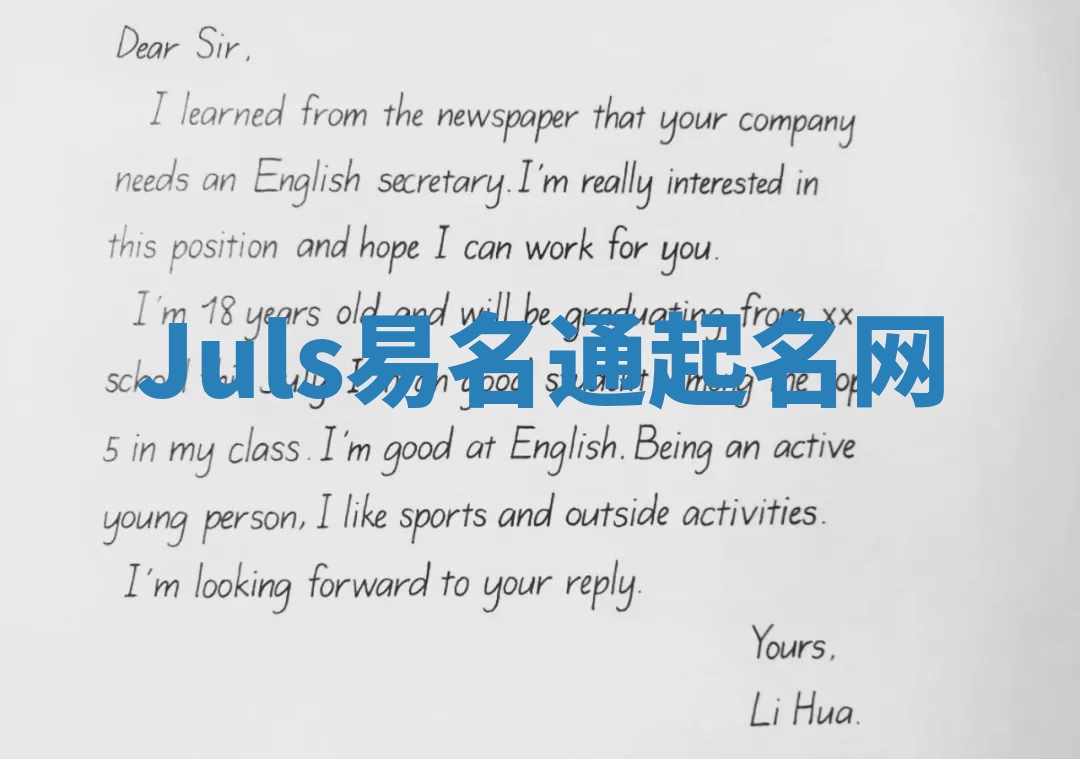 Dear Sir,
I learned from the newspaper that your company
needs an English secretary. I'm really interested in
this position and hope I can work for you.
I'm 18 years old and will be graduating from xx
Juls易名通起名网
school this July. I'm good student among the top
5 in my class. I'm good at English. Being an active
young person, I like sports and outside activities.
I'm looking forward to your reply.
Yours,
Li Hua.